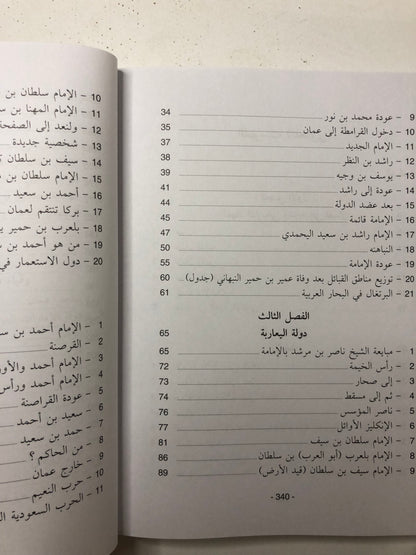 9 – عودة محمد بن نور 34
10 – دخول القرامطة إلى عمان 35
11 – الإمام الجديد 37
12 – راشد بن النظر 38
13 – يوسف بن وجيه 39
14 – عودة إلى راشد 41
15 – بعد عضد الدولة 44
16 – الإمامة قائمة 45
17 – الإمام راشد بن سعيد اليحمدي 47
18 – النباهنه 50
19 – عودة الإمامة 55
20 – توزيع مناطق القبائل بعد وفاة عمير بن حمير النبهاني (جدول) 60
21 – البرتغال في البحار العربية 61
الفصل الثالث
دولة اليعاربة 65
1 – مبايعة الشيخ ناصر بن مرشد بالإمامة 65
2 – رأس الخيمة 72
3 – إلى صحار 73
4 – ثم إلى مسقط 74
5 – ناصر المؤسس 76
6 – الإنكليز الأوائل 77
7 – الإمام سلطان بن سيف 81
8 – الإمام بلعرب (أبو العرب) بن سلطان 86
9 – الإمام سيف بن سلطان (قيد الأرض) 89
- 340 -
10 – الإمام سلطان بن
11 – الإمام المهنا بن
12 – ولنعد إلى الصفحة
13 – شخصية جديدة
14 – سيف بن سلطان
15 – الإمام سلطان بن
16 – أحمد بن سعيد
17 – بركا تنتقم لعمان
18 – بلعرب بن حمير
19 – من هو أحمد بن
20 – دول الاستعمار في
1 – الإمام أحمد بن
2 – القرصنة
3 – الإمام أحمد
4 – الإمام أحمد ورأس
5 – عودة القراصنة
6 – سعيد بن أحمد
7 – حمد بن سعيد
8 – من الحاكم ؟
9 – خارج عمان
10 – حرب النعيم
11 – الحرب السعودية